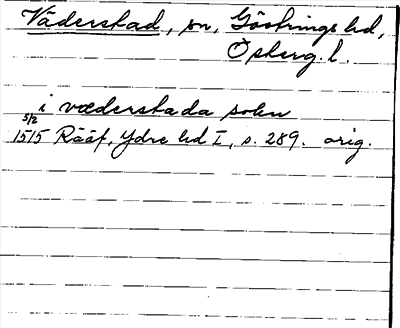 Väderstad, sn, Göstrings hd,
Östergötl.
i wæderstada sokn
5/2
1515 Rääf, Ydre hd I, s. 289. orig.